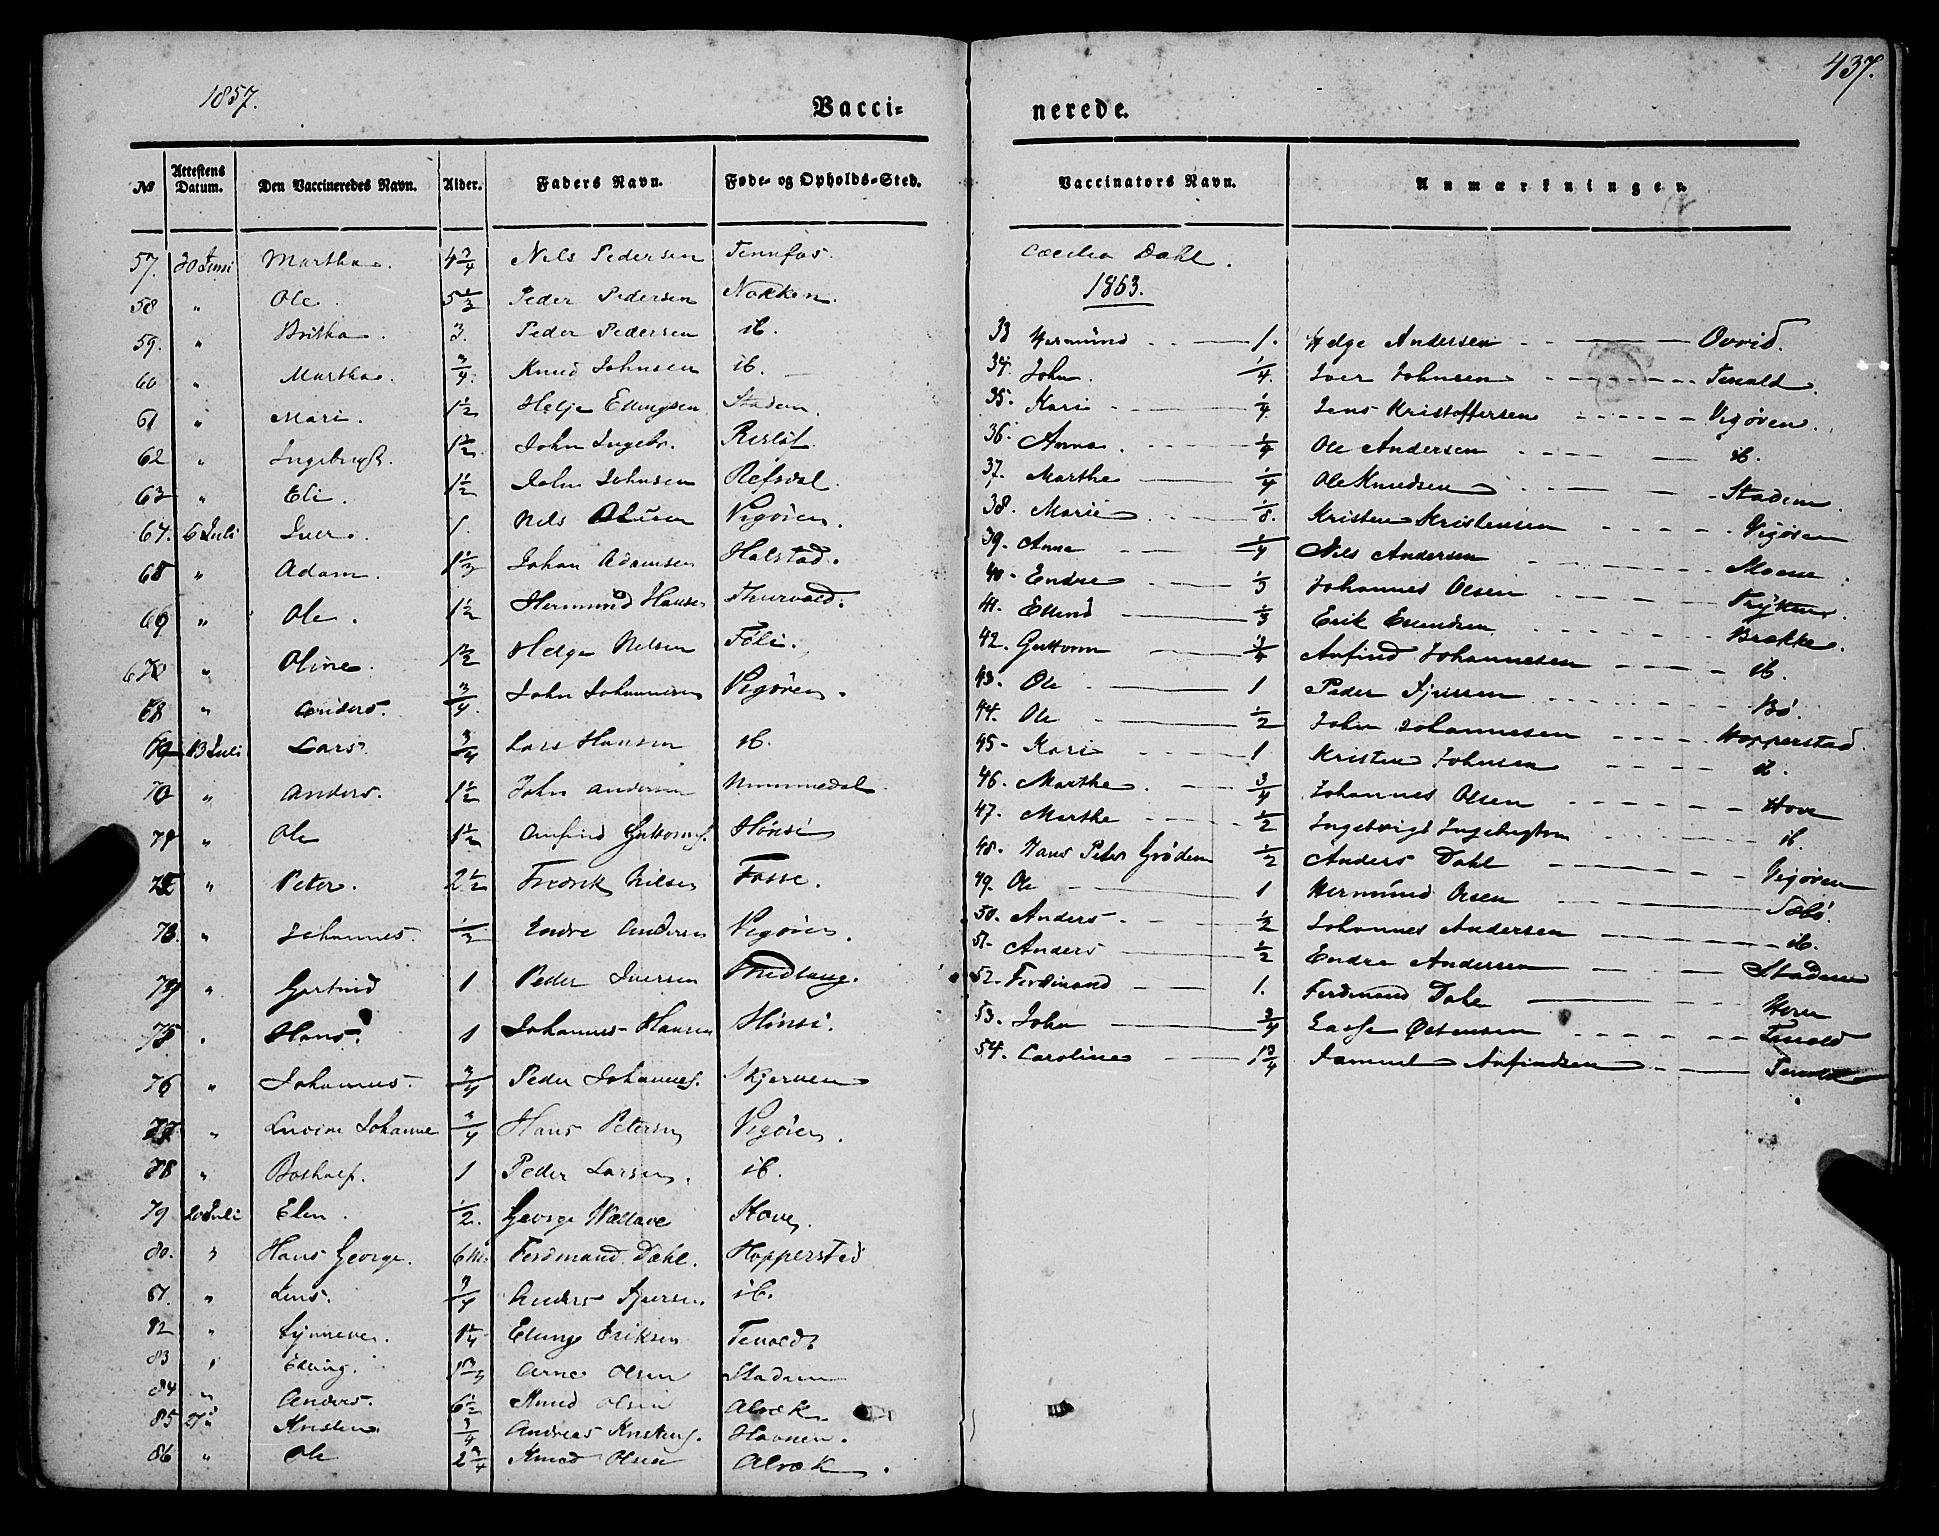 1857.
437.
Vacci- nerede.
No | Attestens Datum. | Den Vaccineredes Navn. | Alder. | Faders Navn. | Føde- og Opholds-Sted. | Vaccinators Navn. | Anmærkninger.
57. 30 Juni Martha. 4 3/4 Nils Pedersen Tennfos.
58 " Ole. 5 1/2 Peder Pedersen Nokken.
59. " Britha. 3. Peder Pedersen ib.
60 " Martha. 3/4. Knud Johnsen ib.
61 " Mari. 1 1/2 Helje Ellingsen Stadem.
62 " Ingebrigt. 1 1/2 John Ingebr.
63 " Eli. 1 1/2 John Johnsen Refsdal.
64. 6 Juli Iver. 1. Nils Olsen Vigøren.
65 " Adam. 1 1/2 Johan Adamsen Halstad.
66 " Ole. 1 1/2 Hermund Hansen Thurvold.
67 " Oline. 1 1/2 Helge Nelsen Føli.
68 " Anders. 3/4. John Johannesen Vigøren.
69 13 Juli Lars. 3/4 Lars Hansen ib.
70 " Anders. 1 1/2 John Andersen Nummedal.
71 " Ole 1 1/2 Anfind Guttorms. Hønsi
72 " Peter. 2 1/2 Fredrik Nilsen Fosse.
73. " Johannes. 1/2 Endre Andersen Vigøren.
74 " Gertrud 1 Peder Iversen
75 " Hans. 1 Johannes Hansen Hønsi.
76 " Johannes. 3/4 Peder Johannes. Skjerven
77 " Johanne 3/4 Hans Petersen Vigøren.
78 " 1 Peder Larsen. ib.
79 20 Juli Elen. 1/2. George Wallace Hove
80. " Hans George. 6 M. Ferdinand Dahl. Hopperstad
81. " Jens. 3/4 Anders Sjursen. ib.
82 " Synneve. 1 1/4 Elling Eriksen Tenold
83 " Elling. 1 3/4 Arne Olsen Stadem
84 " Anders. 6 1/2 Knud Olsen Alrek.
85 27 " Kristen. 3/4 Andreas Kristens. Havnen.
86 " Ole 2 3/4 Knud Olsen Alrek.
Cæcilia Dahl.
1863.
33 Hermund 1. Helge Andersen Orvid.
34. John. 1/4. Iver Johnsen Tenold.
35. Kari 1/4 Jens Kristoffersen Vigøren.
36. Anna. 1/4 Ole Andersen ib.
37. Marthe 1/4 Ole Knudsen Stadem.
38. Marie 1/8. Kristen Kristensen Vigøren
39. Anne 1/4 Nils Andersen Moene.
40. Endre 1/3 Johannes Olsen
41. Ellend 1/3 Erik Erlendsen Brekke.
42. Guttorm 3/4 Anfind Johannesen ib.
43. Ole 1 Peder Sjursen Bø.
44. Ole 1/2 John Johannesen Hopperstad.
45. Kari 1 Kristen Johnsen ib.
46. Marthe. 3/4 Johannes Olsen Hove
47. Marthe 1/2 Ingebrigt Ingebrigtsen ib.
48. Hans Peter Grødem 1/2 Anders Dahl Vigøren
49. Ole 1 Hermund Olsen Sæbø.
50. Anders 1/2 Johannes Andersen ib.
51. Anders 1/2 Endre Andersen Stadem
52. Ferdinand 1. Ferdinand Dahl Hove
53. John 3/4 Lasse Østensen Tenold
54. Caroline 1 3/4 Samuel Anfindsen Tenold